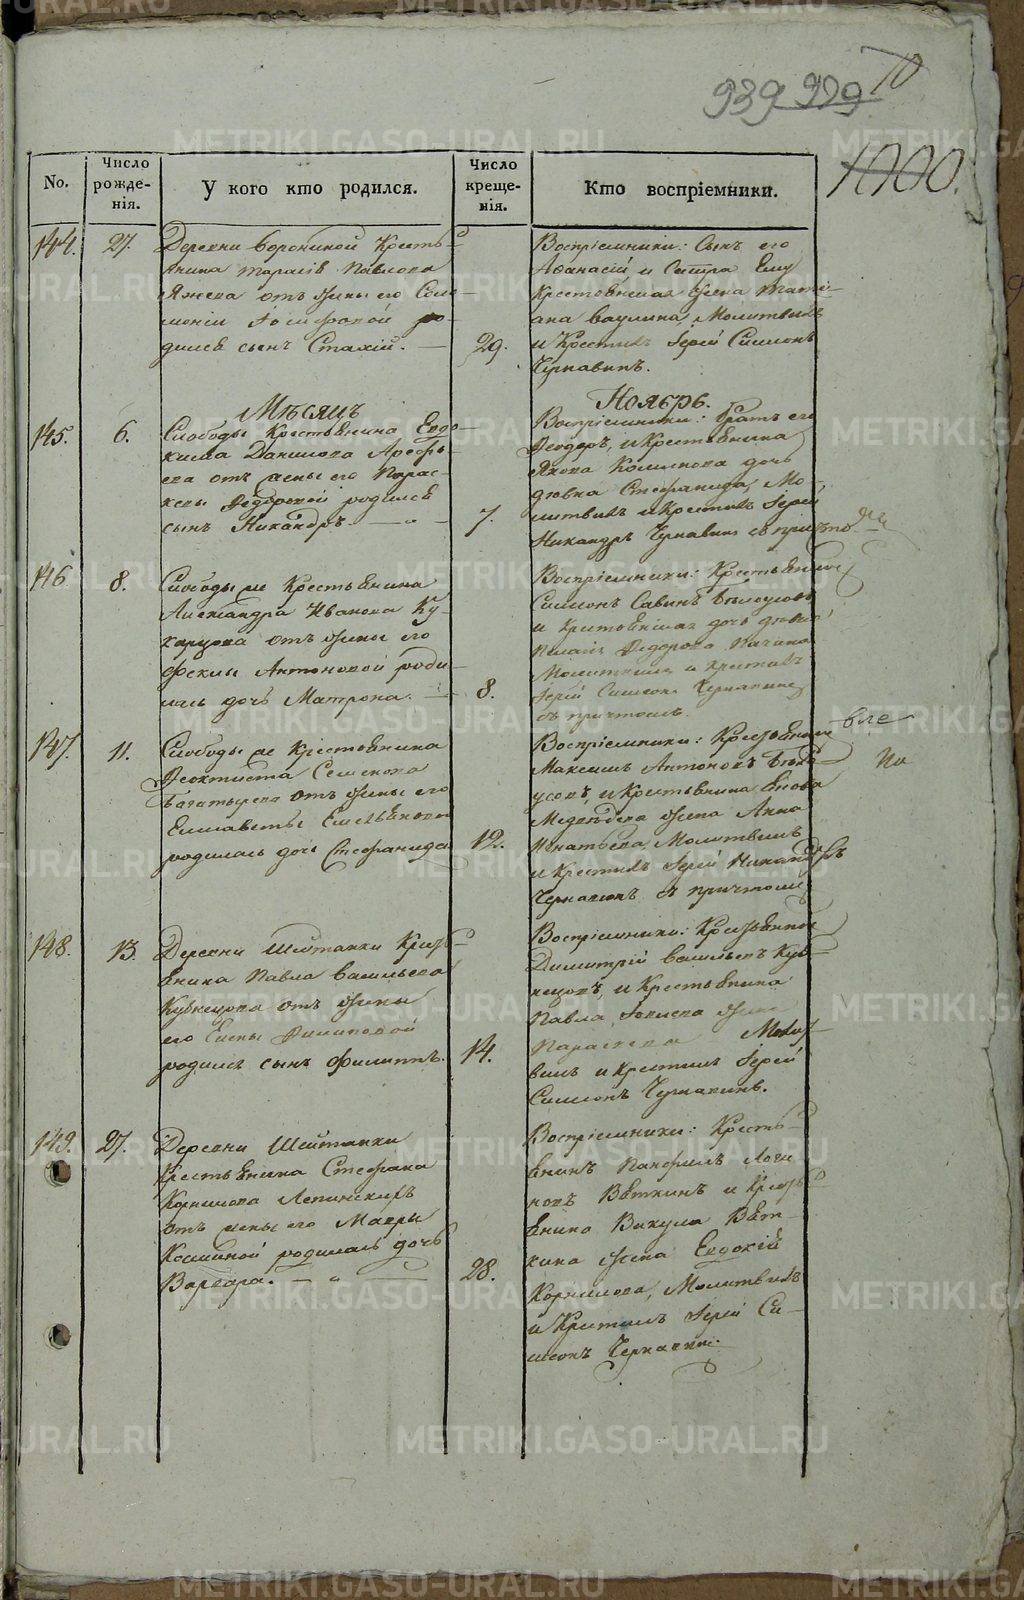 939 979 10
1000.
No.
Число рожде-нія.
У кого кто родился.
Число креще-нія.
Кто воспріемники.
144. 27.
Деревни Ворониной Кресть-
янина Тарасія Павлова
Яжева отъ жены его Соло-
моніи Іосифовой ро-
дился сынъ Стахій.
29.
Воспріемники: Сынъ его
Афанасій и Сестра Ему
Крестьянская жена Тати-
ана Ваулина, Молитвилъ
и Крестилъ Іерей Симеонъ
Чернавинъ.
Мѣсяцъ Ноябрь.
145. 6.
Слободы Крестьянина Евдо-
кима Данилова Арефь-
ева отъ жены его Парас-
кевы Федоровой родился
сынъ Никандръ.
7.
Воспріемники: братъ его
Феодоръ, и Крестьянина
Якова дочь
дѣвка Стефанида, Мо-
литвилъ и Крестилъ Іерей
Никандръ Чернавинъ съ причто
146 8.
Слободы же Крестьянина
Александра Иванова Ку-
харцова отъ жены его
Феклы Антоновой роди-
лась дочь Матрона.
8.
Воспріемники: Крестьянинъ
Симеонъ Савинъ Бѣлоусовъ
и Крестьянская дочь дѣвка
Федорова
Молитвилъ и крестилъ
Іерей Симеонъ Чернавинъ
съ причтомъ.
147. 11.
Слободы же Крестьянина
Феоктиста Семенова
Богатырева отъ жены его
Елисаветы Емельяновой
родилась дочь Стефанида
12.
Воспріемники: Крестьянинъ
Максимъ Антоновъ Бѣло-
усовъ, и Крестьянина Якова
Медвѣдева жена Анна
Игнатьева, Молитвилъ
и Крестилъ Іерей Никандръ
Чернавинъ съ причтомъ
148. 13.
Деревни Шейтанки Кресть-
янина Павла Васильева
Кузнецова отъ жены
его Елены Филиповой
родился сынъ Филиппъ.
14.
Воспріемники: Крестьянинъ
Димитрій Васильевъ Куз-
нецовъ, и Крестьянина
Павла жена
Параскева Молит-
вилъ и крестилъ Іерей
Симеонъ Чернавинъ.
149. 27.
Деревни Шейтанки
Крестьянина Стефана
Корнилова Лепинскихъ
отъ жены его Мавры
Козминой родилась дочь
Варвара.
28.
Воспріемники: Кресть-
янинъ Панфилъ Логи
новъ Вяткинъ и Кресть-
янина Викула Вят-
кина жена Евдокій
Корнилова, Молитвилъ
и Крестилъ Іерей Си-
меонъ Чернавинъ.
METRIKI.GASO-URAL.RU